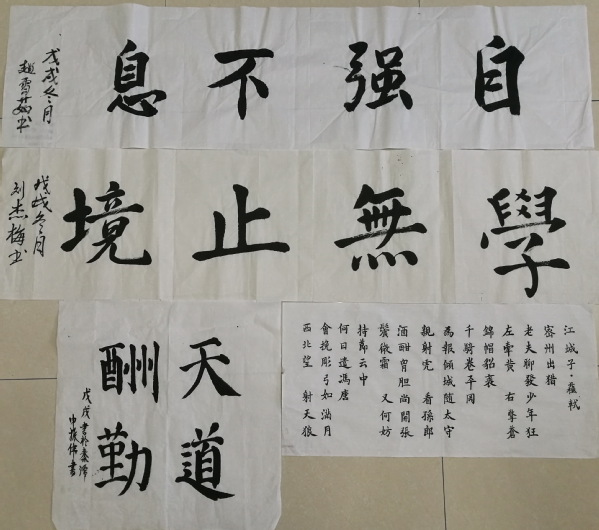 自强不息
戊戌冬月
趙雪茹书
學無止境
戊戌冬月
刘杰梅书
天道
酬勤
戊戌書於
書
江城子·蘇軾
密州出猎
老夫聊發少年狂
左牽黄 右擎蒼
錦帽貂裘
千騎卷平岡
為報傾城随太守
親射虎 看孫郎
酒酣胷胆尚開張
鬢微霜 又何妨
持節云中
何日遣馮唐
會挽彫弓如满月
西北望 射天狼